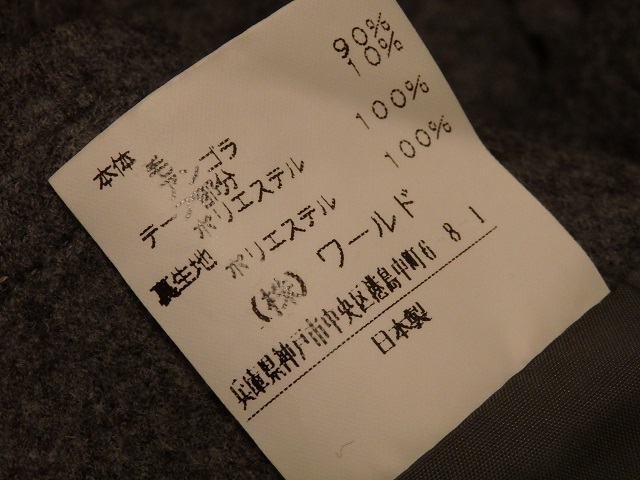 本体 毛 90%
アンゴラ 10%
テープ部分
ポリエステル 100%
裏生地 ポリエステル 100%
(株) ワールド
兵庫県神戸市中央区港島中町6 8 1
日本製